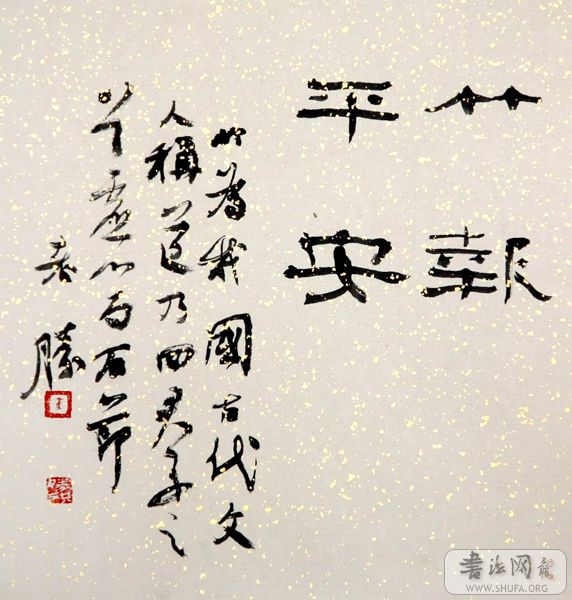 竹報
平安
竹為我國古代文
人稱道乃四君子之
虛心節
勝
書法网
WWW.SHUFA.ORG